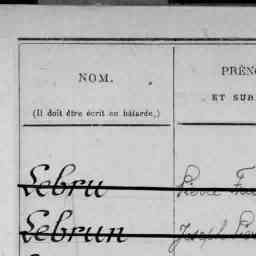 NOM.
(Il doit être écrit en bâtarde.)
PRÉN
ET SUR
Lebru
Pierre
Lebrun
Joseph